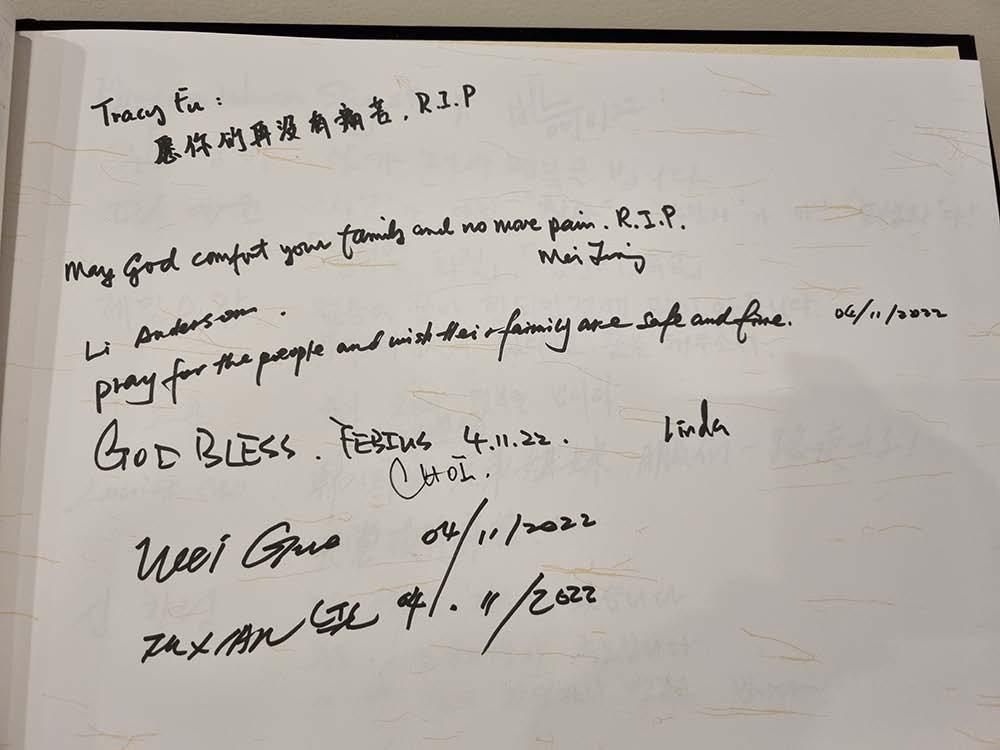 Tracy Fu:
愿你们再没有痛苦. R.I.P
May God comfort your family and no more pain. R.I.P.
Mei
Li Anderson.
pray for the people and wish their family are safe and fine. 04/11/2022
Linda
GOD BLESS. FEBIUS 4.11.22.
CHOI.
Wei Guo 04/11/2022
04/.11/2022